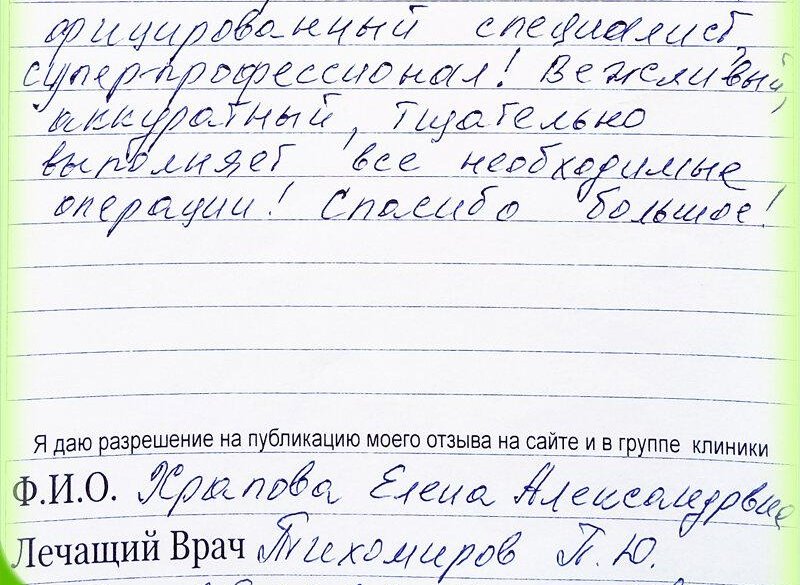 фицированный специалист,
суперпрофессионал! Вежливый,
аккуратный, тщательно
выполняет все необходимые
операции! Спасибо большое!
Я даю разрешение на публикацию моего отзыва на сайте и в группе клиники
Ф.И.О. Храпова Елена Александровна
Лечащий Врач Тихомиров П.Ю.